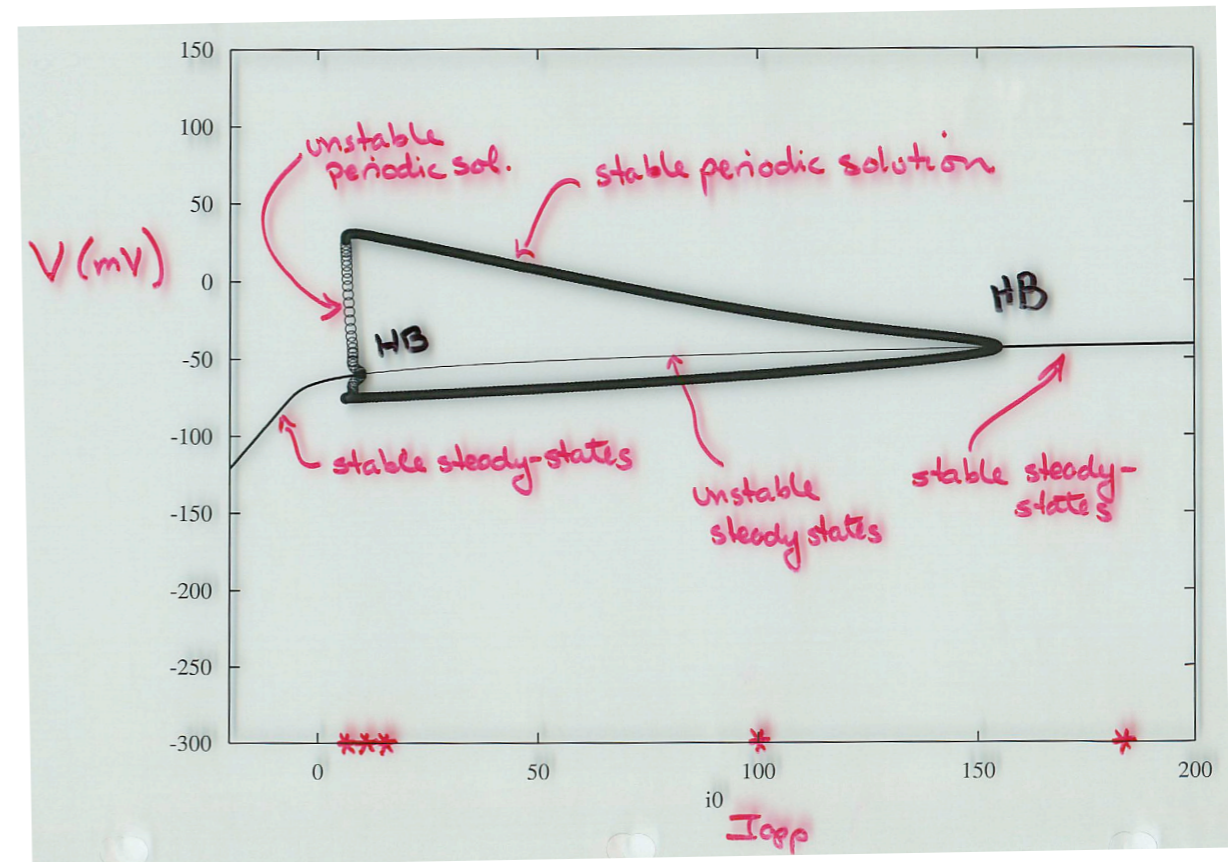 150
100
50
0
-50
-100
-150
-200
-250
-300
V (mV)
unstable
periodic sol.
stable periodic solution
HB
HB
stable steady-states
unstable
steady states
stable steady-
states
* * * * *
0 50 100 150 200
i0
Iapp